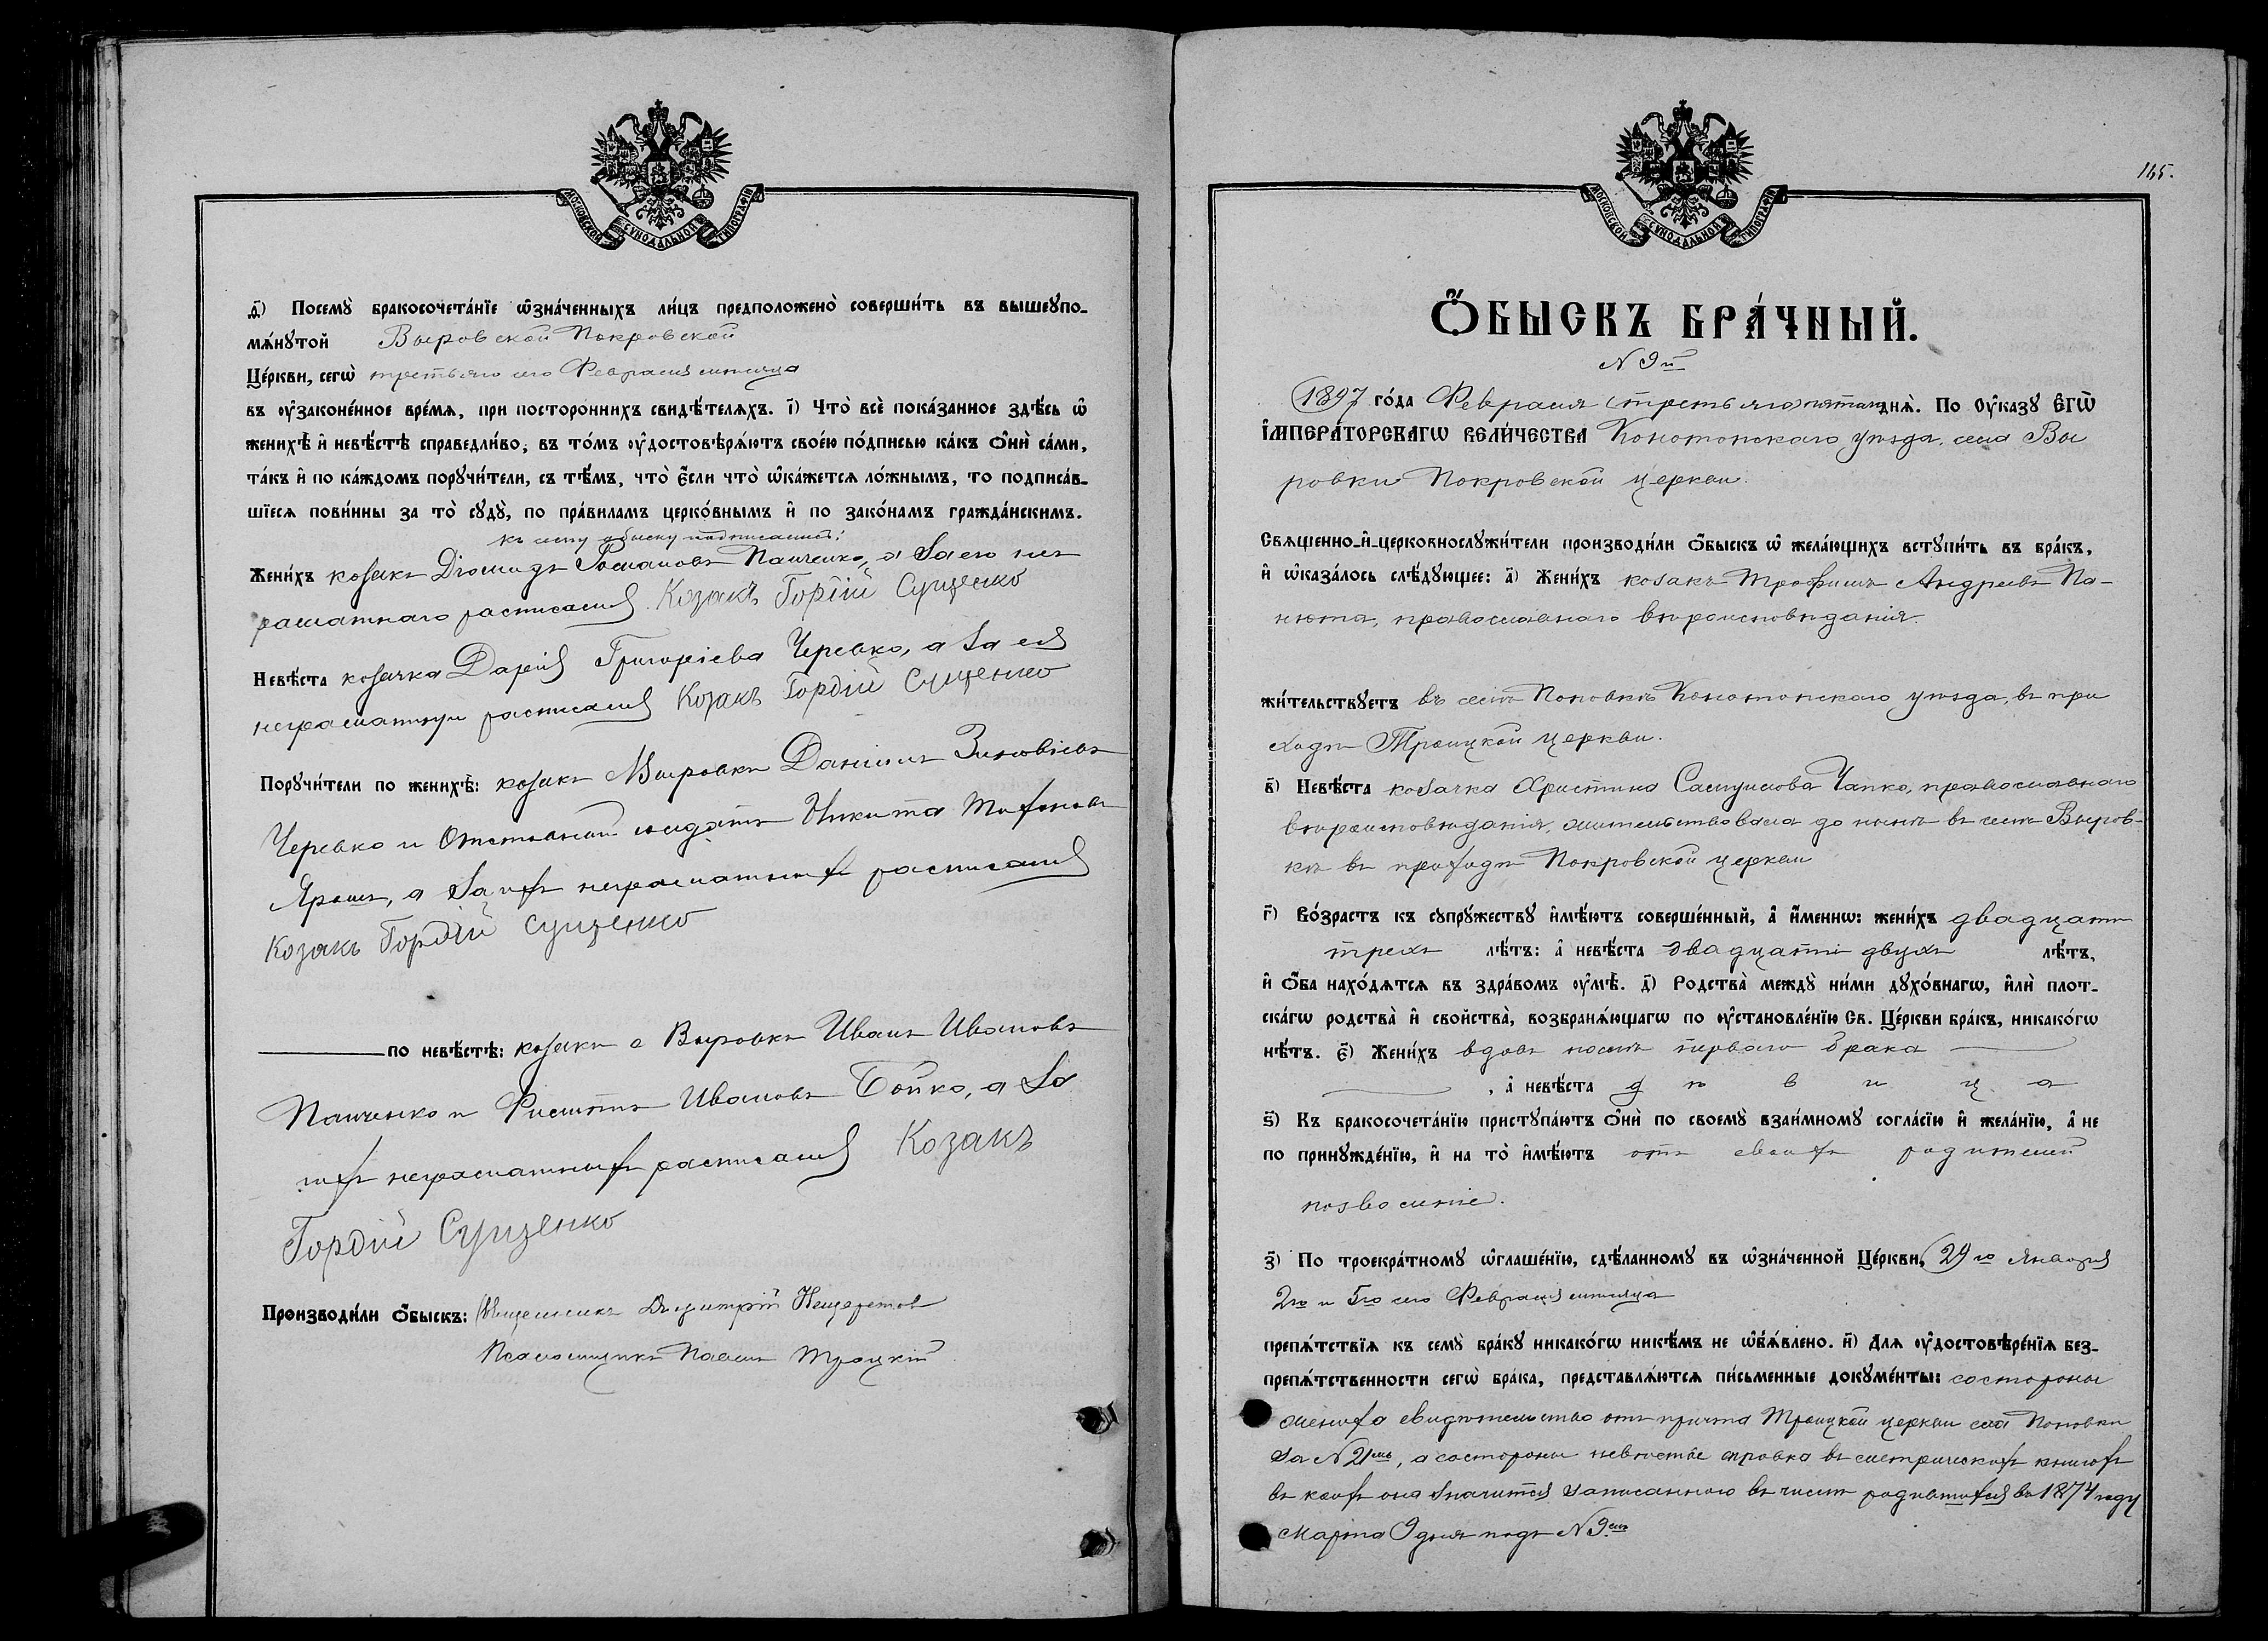 МОСКОВСКОЙ СѴНОДАЛЬНОЙ ТИПОГРАФІИ
д҃) Посемꙋ̀ бракосочета́нїе ѡ҆зна́ченныхъ ли́цъ предположено̀ соверши́ть въ вышеꙋпо-
мѧ́нꙋтой Выровской Покровской
Це́ркви, сегѡ̀ третьяго сего Февраля мѣсяца
въ ᲂу҆законе́нное вре́мѧ, при постороннихъ свидѣ́телѧхъ. і҃) Что̀ всѐ пока́занное здѣ́сь ѡ҆
женихѣ̀ и҆ невѣ́стѣ справедли́во, въ то́мъ ᲂу҆достовѣрѧ́ютъ свое́ю по́дписью ка́къ ѻ҆нѝ са́ми,
та́къ и҆ по ка́ждомъ порꙋчи́тели, съ тѣ́мъ, что̀ є҆́сли что̀ ѡ҆ка́жетсѧ ло́жнымъ, то подписа́в-
шїесѧ пови́нны за то̀ сꙋдꙋ̀, по пра́виламъ церко́внымъ и҆ по зако́намъ гражда́нскимъ.
къ сему обыску подписались:
Жени́хъ козакъ Діомидъ Романовъ Панченко, а за его не
грамотнаго расписался Козакъ Гордій Сущенко
Невѣ́ста козачка Дарія Григоріева Черевко, а за ея
неграмотную расписался Козакъ Гордій Сущенко
Порꙋчи́тели по женихѣ̀: козакъ с Выровки Даніилъ Зиновіевъ
Черевко и Отставной солдатъ Никита Тихоновъ
Ярошъ, а за ихъ неграмотныхъ расписался
Козакъ Гордій Сущенко
по невѣ́стѣ: козаки с Выровки Иванъ Ивановъ
Панченко и Филиппъ Ивановъ Бойко, а за
ихъ неграмотныхъ расписался Козакъ
Гордій Сущенко
Производи́ли ѻ҆́быскъ: Священникъ Димитрій Нещеретов
Псаломщикъ Павелъ Троцкій
МОСКОВСКОЙ СѴНОДАЛЬНОЙ ТИПОГРАФІИ
165.
Ѻ҆́БЫСКЪ БРА́ЧНЫЙ.
N 9й
1897 го́да Февраля третьяго пятаго днѧ̀. По ᲂу҆казꙋ Є҆ГѠ̀
І҆МПЕРА́ТОРСКАГѠ ВЕЛИ́ЧЕСТВА Конотопскаго уѣзда, села Вы
ровки Покровской церкви.
Свѧщенно-и҆-церковнослꙋжи́тели производи́ли ѻ҆́быскъ ѡ҆ жела́ющихъ встꙋпи́ть въ бра́къ,
и҆ ѡ҆каза́лось слѣ́дꙋющее: а҃) Жени́хъ козакъ Трофимъ Андреевъ Па-
нюта, православнаго вѣроисповѣданія
жи́тельствꙋетъ въ селѣ Поповкѣ Конотопскаго уѣзда, въ при
ходѣ Троицкой церкви.
в҃) Невѣ́ста козачка Христина Самуилова Чапко, православнаго
вѣроисповѣданія, жительствовала до нынѣ въ селѣ Выров-
кѣ въ приходѣ Покровской церкви
г҃) Во́зрастъ къ сꙋпрꙋ́жествꙋ и҆мѣ́ютъ соверше́нный, а҆ и҆́меннѡ: жени́хъ двадцати
трехъ лѣ́тъ: а҆ невѣ́ста двадцати двухъ лѣ́тъ,
и҆ ѻ҆́ба нахо́дѧтсѧ въ здра́вомъ ᲂу҆мѣ̀. д҃) Родства̀ междꙋ̀ ни́ми дꙋхо́внагѡ, и҆лѝ плот-
ска́гѡ родства̀ и҆ свойства̀, возбранѧ́ющагѡ по ᲂу҆становле́нїю Св. Це́ркви бра́къ, никако́гѡ
нѣ́тъ. є҃) Жени́хъ вдовъ послѣ перваго брака
, а҆ невѣ́ста дѣвица
ѕ҃) Къ бракосочета́нїю пристꙋпа́ютъ ѻ҆нѝ по своемꙋ̀ взаи́мномꙋ согла́сїю и҆ жела́нїю, а҆ не
по принꙋжде́нїю, и҆ на то̀ и҆мѣ́ютъ отъ своихъ родителей
позволеніе.
з҃) По троекра́тномꙋ ѡ҆глаше́нїю, сдѣ́ланномꙋ въ ѡ҆зна́ченной Це́ркви, 29го Января
2го и 5го сего Февраля мѣсяца
препѧ́тствїѧ къ семꙋ̀ бра́кꙋ никако́гѡ никѣ́мъ не ѡ҆б̾ѧ́влено. и҃) Длѧ ᲂу҆достовѣре́нїѧ без-
препѧ́тственности сегѡ̀ бра́ка, представлѧ́ютсѧ пи́сьменные докꙋме́нты: со стороны
жениха свидѣтельство отъ причта Троицкой церкви села Поповки
за N 21мъ, а со стороны невѣсты справка въ метрическихъ книгахъ
въ коихъ она значится записанною въ числѣ родившихся въ 1874 году
Марта 9 дня подъ N 9мъ